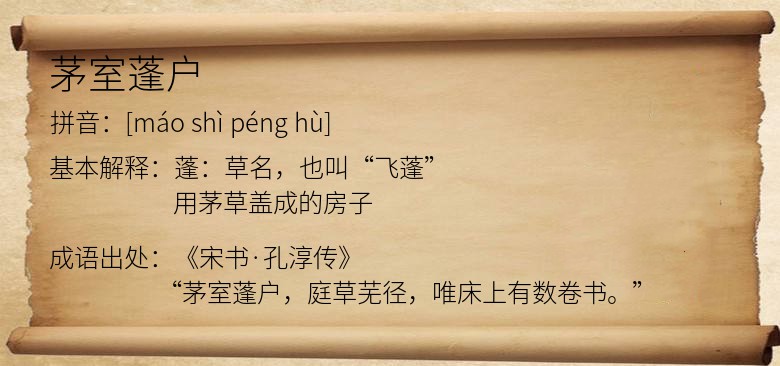 茅室蓬户
拼音：[máo shì péng hù]
基本解释：蓬：草名，也叫“飞蓬”
用茅草盖成的房子
成语出处：《宋书·孔淳传》
“茅室蓬户，庭草芜径，唯床上有数卷书。”